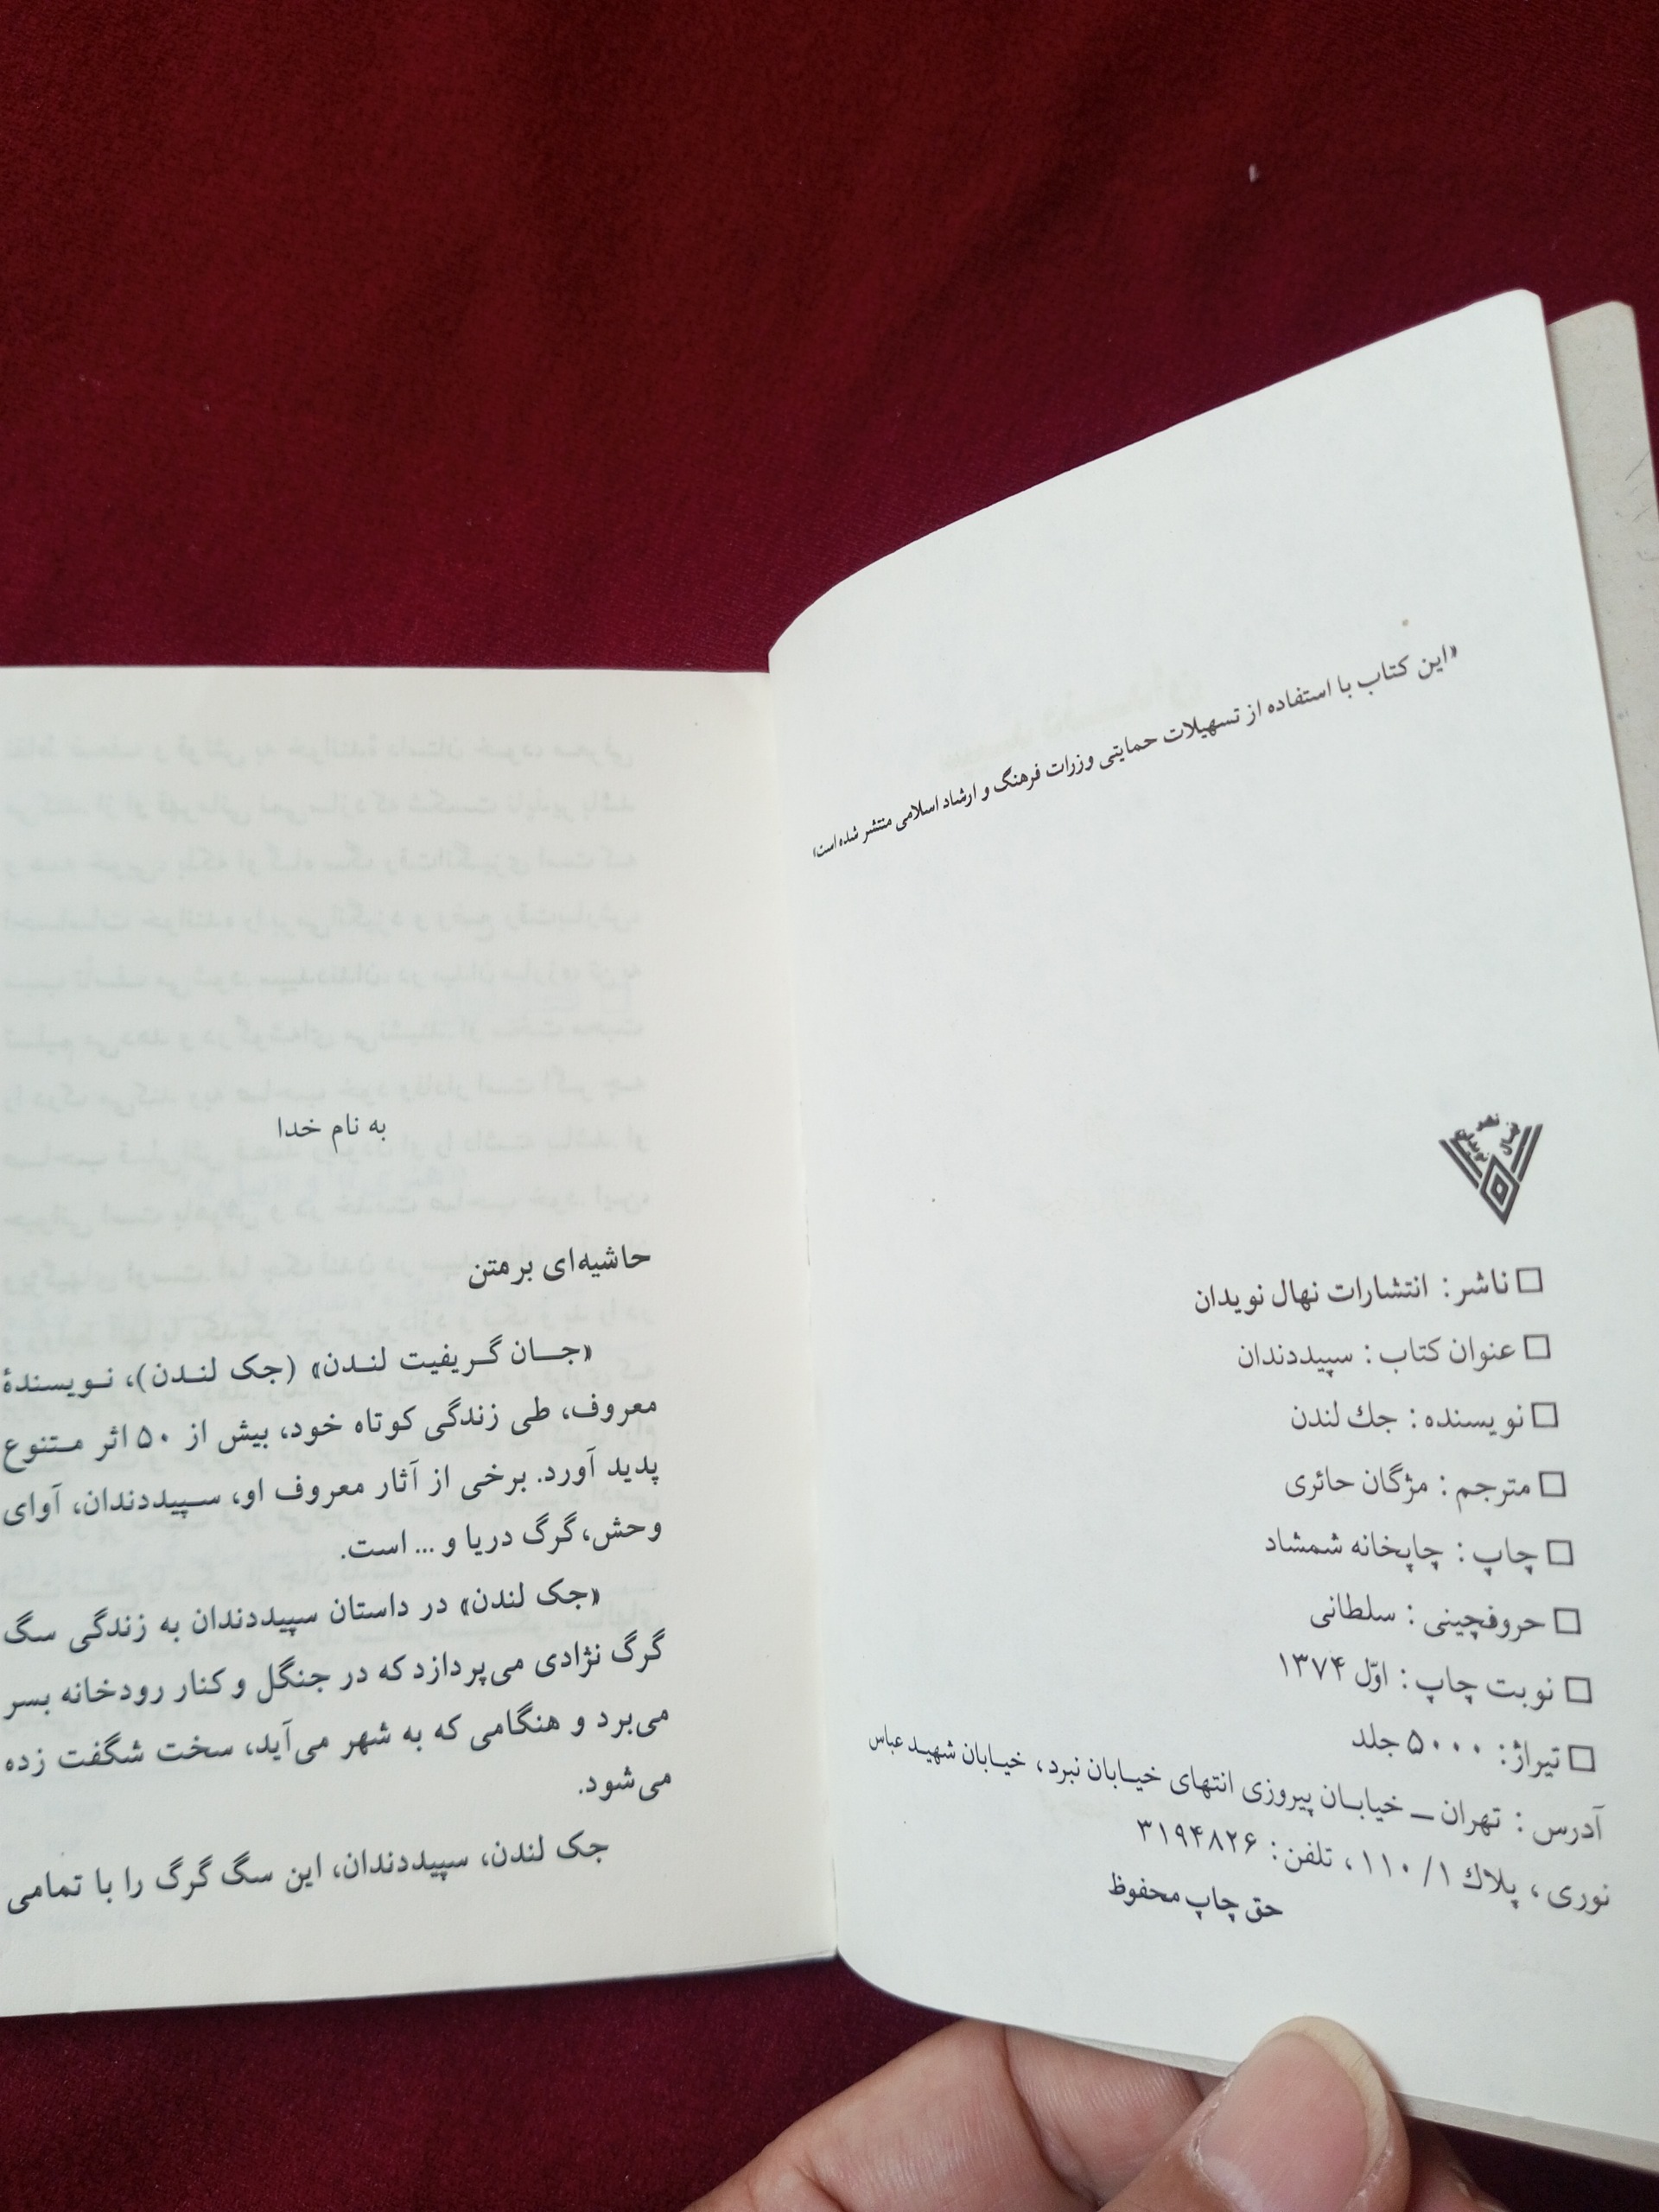 «این کتاب با استفاده از تسهیلات حمایتی وزرات فرهنگ و ارشاد اسلامی منتشر شده است»
□ ناشر: انتشارات نهال نویدان
□ عنوان کتاب: سپیددندان
□ نویسنده: جك لندن
□ مترجم: مژگان حائری
□ چاپ: چاپخانه شمشاد
□ حروفچینی: سلطانی
□ نوبت چاپ: اوّل ۱۳۷۴
□ تیراژ: ۵۰۰۰ جلد
آدرس: تهران ــ خیابان پیروزی انتهای خیابان نبرد، خیابان شهید عباس
نوری، پلاك ۱/ ۱۱۰، تلفن: ۳۱۹۴۸۲۶
حق چاپ محفوظ
به نام خدا
حاشیه‌ای بر متن
«جان گریفیت لندن» (جک لندن)، نویسندهٔ
معروف، طی زندگی کوتاه خود، بیش از ۵۰ اثر متنوع
پدید آورد. برخی از آثار معروف او، سپیددندان، آوای
وحش، گرگ دریا و ... است.
«جک لندن» در داستان سپیددندان به زندگی سگ
گرگ نژادی می‌پردازد که در جنگل و کنار رودخانه بسر
می‌برد و هنگامی که به شهر می‌آید، سخت شگفت زده
می‌شود.
جک لندن، سپیددندان، این سگ گرگ را با تمامی